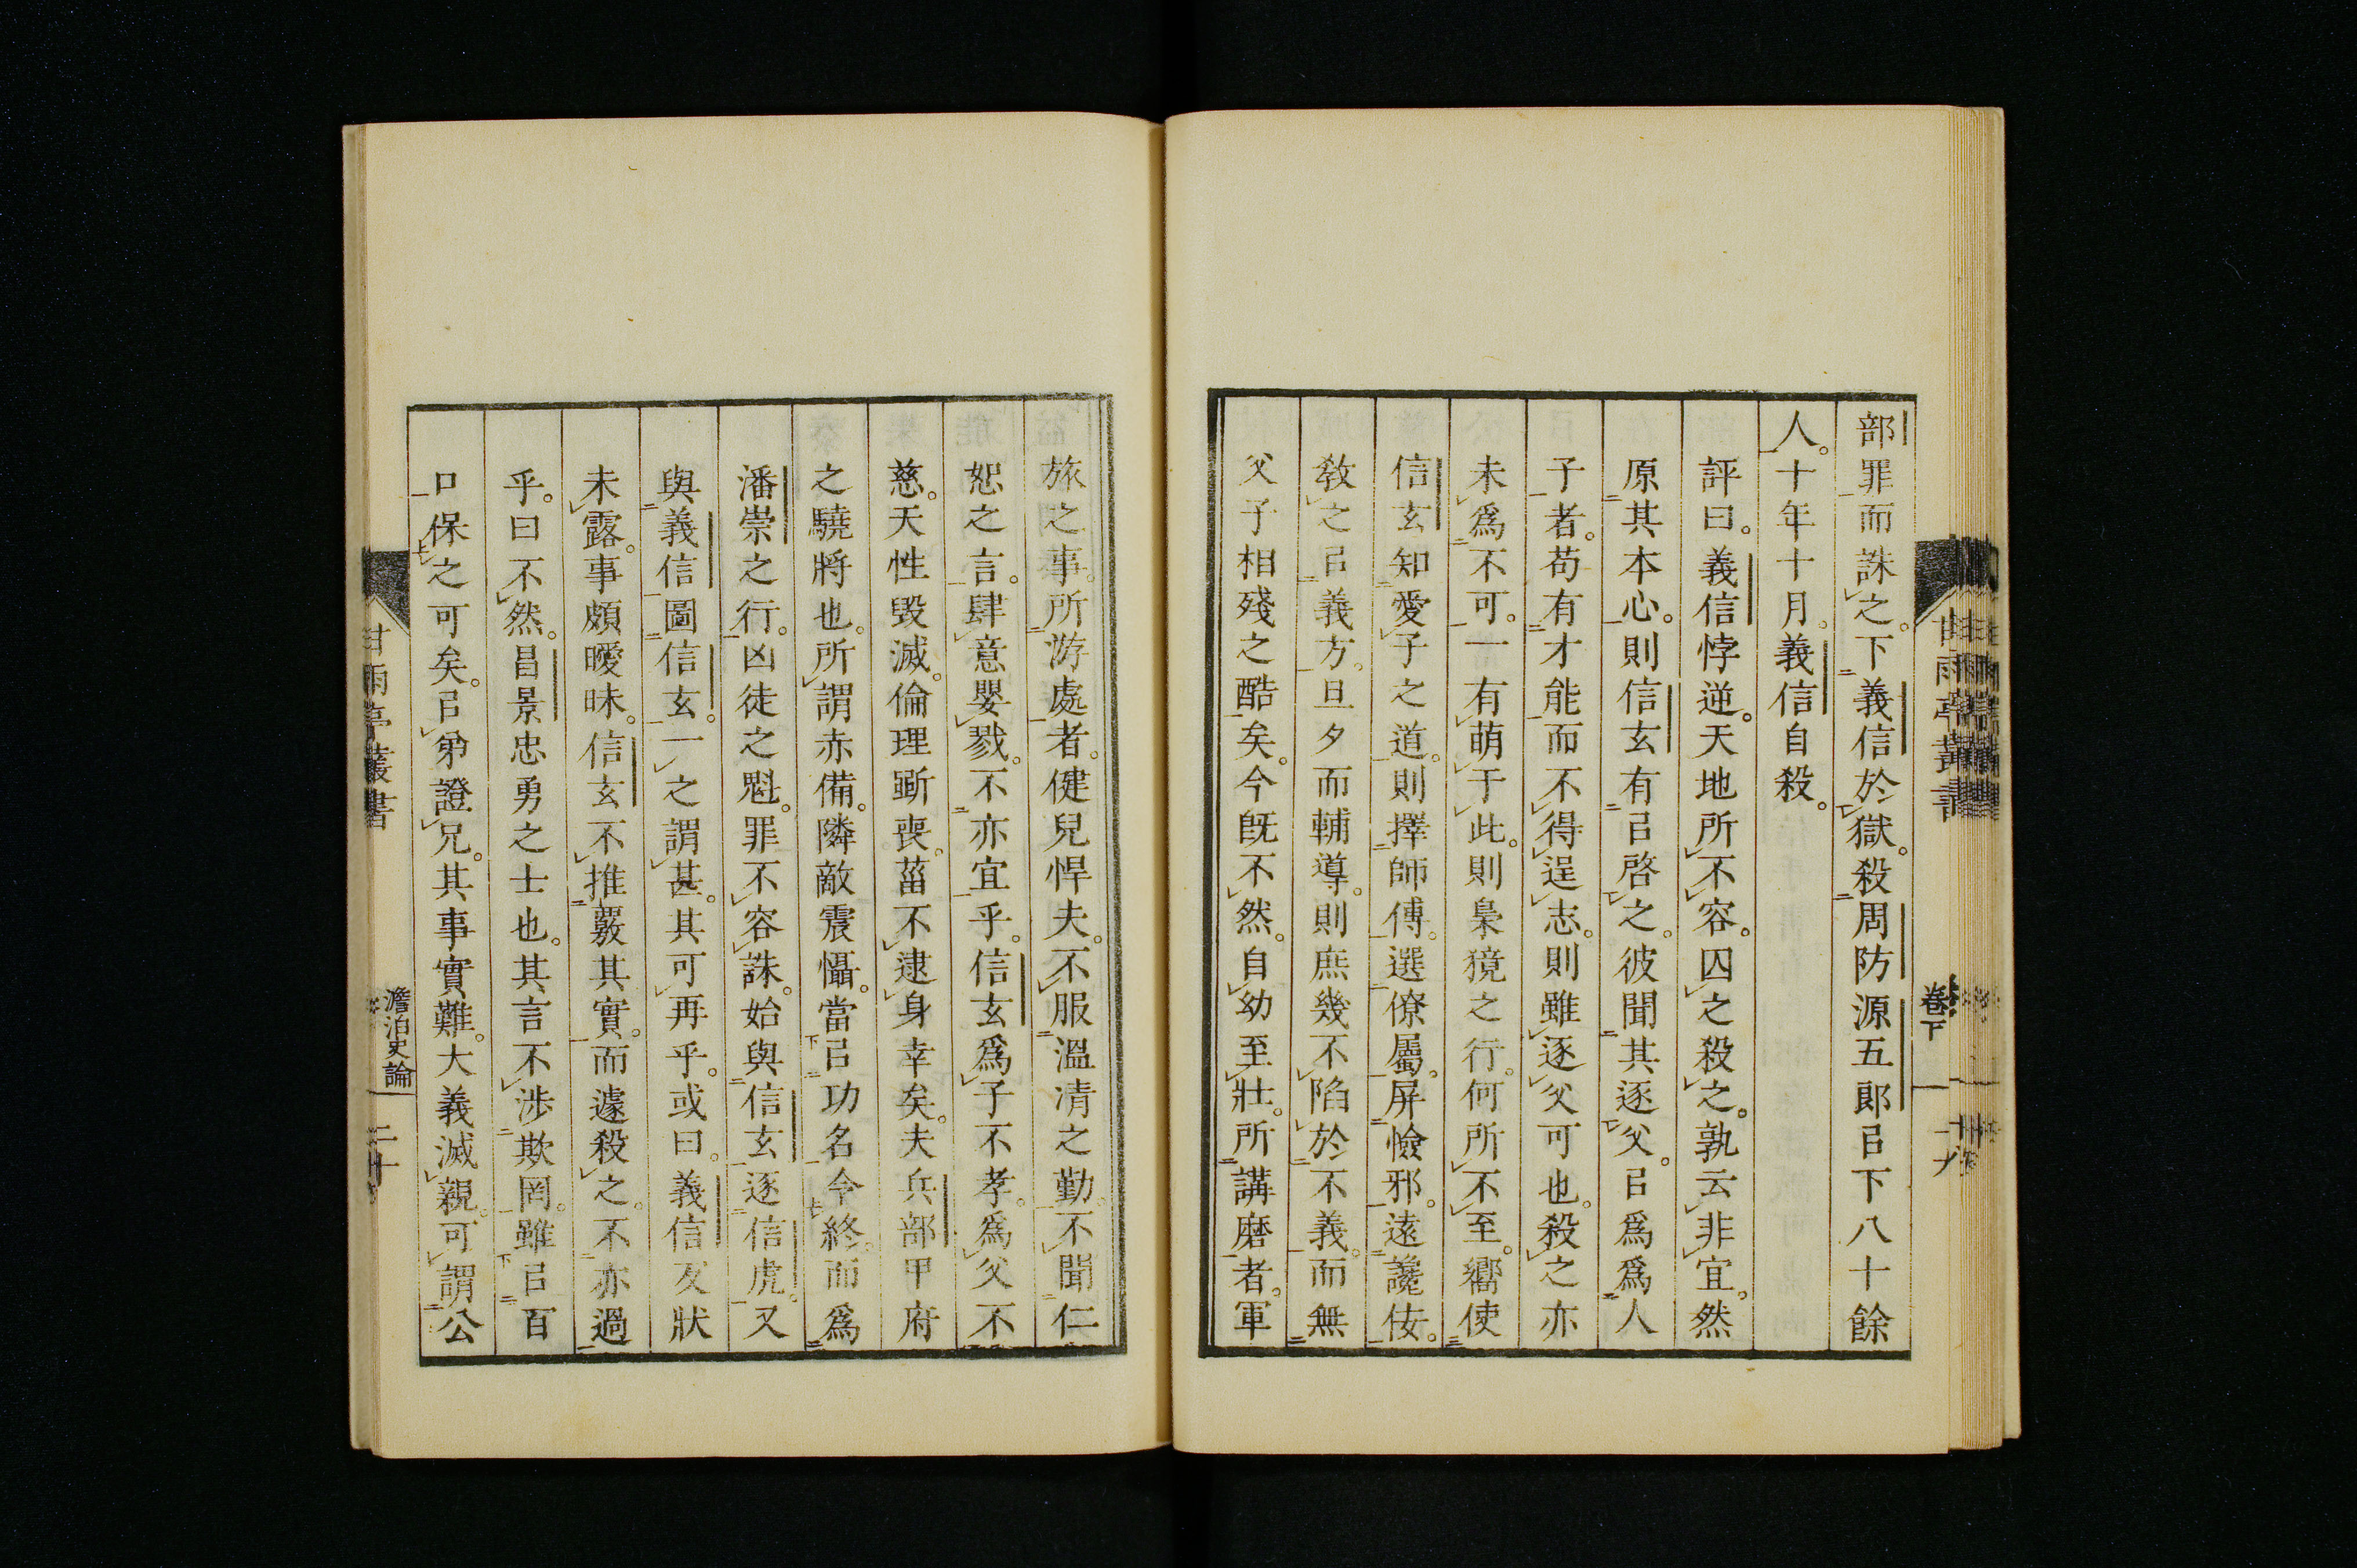 部罪而誅之。下義信於獄。殺周防源五郎㠯下八十餘
人。十年十月。義信自殺。
評曰。義信悖逆。天地所不容。囚之殺之。孰云非宜。然
原其本心。則信玄有㠯啓之。彼聞其逐父。㠯爲爲人
子者。苟有才能而不得逞志。則雖逐父可也。殺之亦
未爲不可。一有萌于此。則梟獍之行。何所不至。嚮使
信玄知愛子之道。則擇師傅。選僚屬。屏憸邪。遠讒佞。
敎之㠯義方。旦夕而輔導。則庶幾不陷於不義。而無
父子相殘之酷矣。今旣不然。自幼至壯。所講磨者。軍
旅之事。所游處者。健兒悍夫。不服溫凊之勤。不聞仁
恕之言。肆意嬰戮。不亦宜乎。信玄爲子不孝。爲父不
慈。天性毀滅。倫理斲喪。菑不逮身幸矣。夫兵部甲府
之驍將也。所謂赤備。隣敵震懾。當㠯功名令終。而爲
潘崇之行。凶徒之魁。罪不容誅。始與信玄逐信虎。又
與義信圖信玄。一之謂甚。其可再乎。或曰。義信反狀
未露。事頗曖昧。信玄不推覈其實。而遽殺之。不亦過
乎。曰不然。昌景忠勇之士也。其言不涉欺罔。雖㠯百
口保之可矣。㠯弟證兄。其事實難。大義滅親。可謂公
甘雨亭叢書
卷下
十九
甘雨亭叢書
澹泊史論
二十